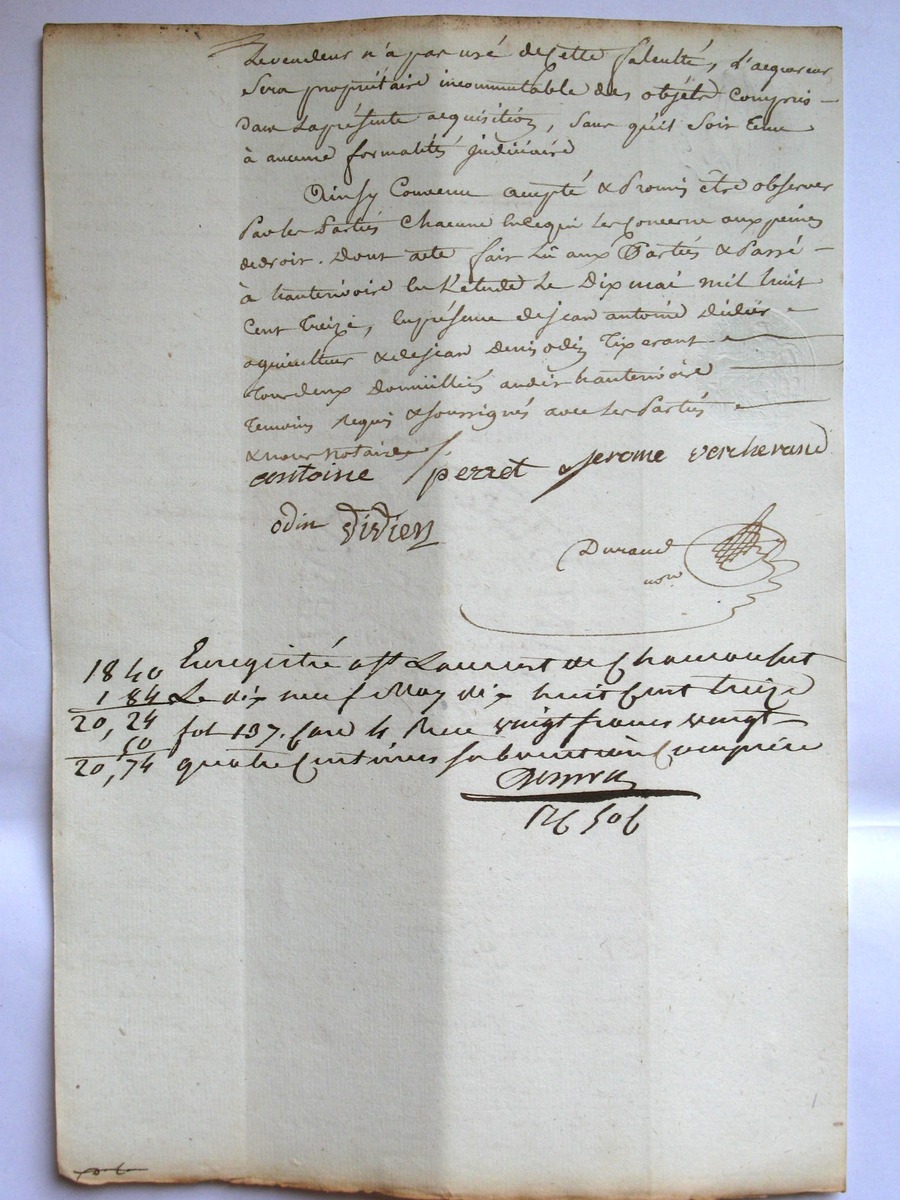 Levendeur n'a pas usé de cette faculté, l'acquereur
sera propriétaire incommutable des objets compris
dans la présente acquisition, sans qu'il soit tenu
à aucune formalité judiciaire
Ainsy Convenu accepté & Promis être observer
Par les Parties Chacune en ce qui les Concerne aux peines
de droit. Dont acte fait Lû aux Parties & Passé
à hauterivoire En l'étude Le Dix mai mil huit
Cent Treize, En présence de jean antoine Didier
agriculteur & de jean Denis odin Tixerant
Tous deux Domiciliés audit hauterivoire
Temoins Requis & soussignés avec les Parties
& nous notaire
antoine perret jerome vercherand
odin Didier
Durand
nore
1840 Enregistré a St Laurent de Chamousset
184 Le dix neuf May dix huit Cent treize
20,24 fol 137. Case 4 Reçu vingt francs vingt
50
20,74 quatre Centimes subvention Comprise